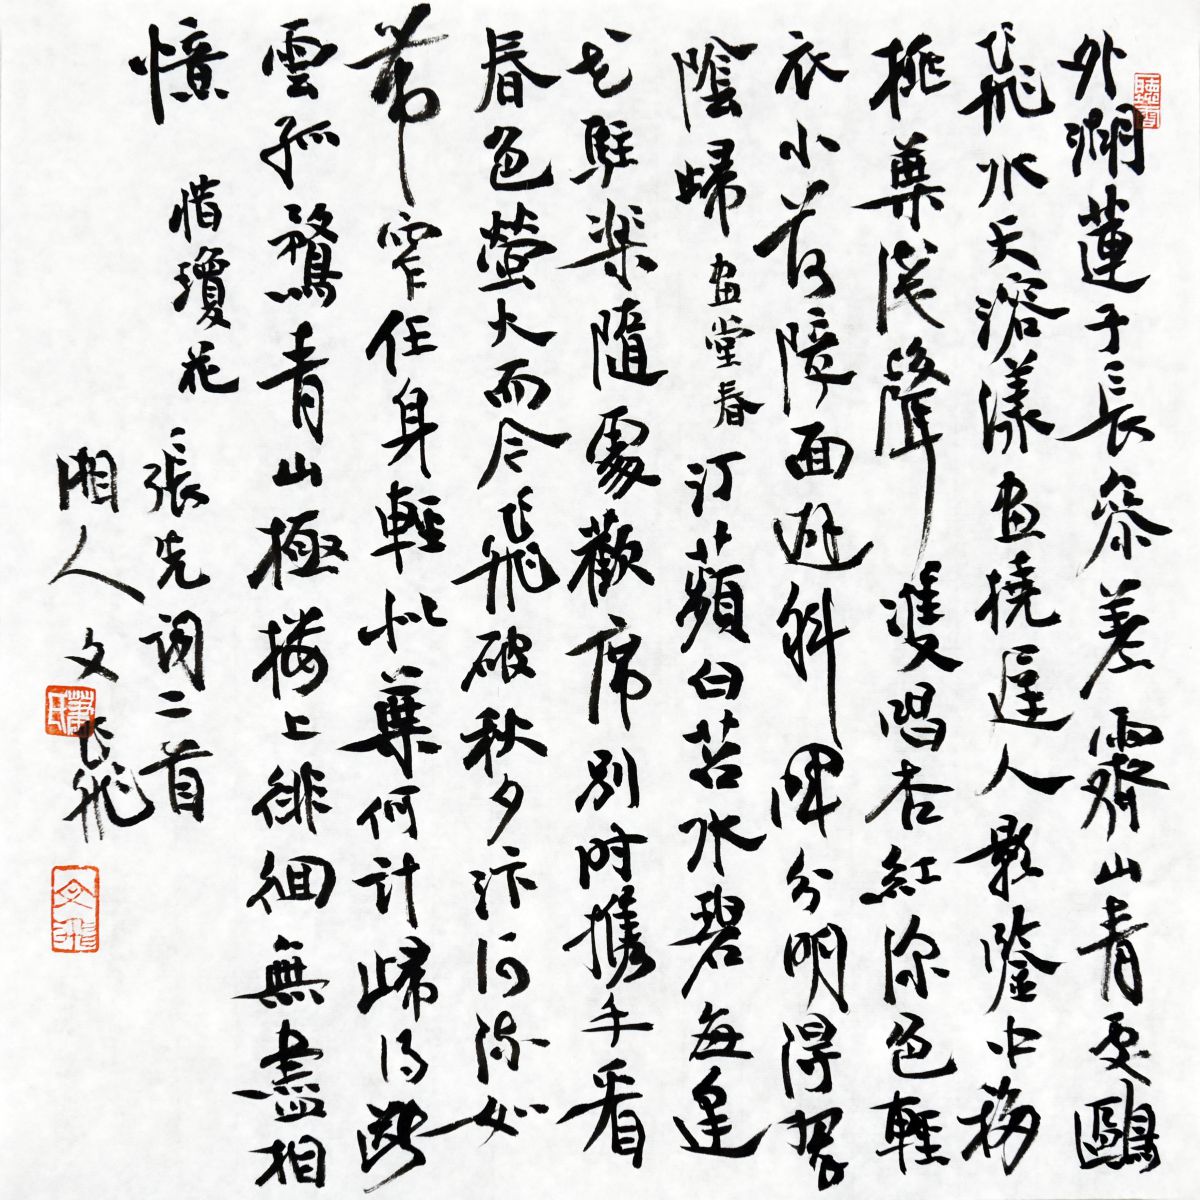 外湖蓮子長參差霽山青處鷗
飛水天溶漾畫橈遲人影鑒中移
桃葉淺聲雙唱杏紅深色輕
衣小荷障面避斜暉分明得翠
陰歸 畫堂春 汀蘋白苕水碧每逢
花駐樂隨處歡席別時攜手看
春色螢火而今飛破秋夕汴河流如
帶窄任身輕似葉何計歸得斷
雲孤鶩青山極樓上徘徊無盡相
憶 惜瓊花
張先詞二首
湘人 文飛
蕭氏
文飛